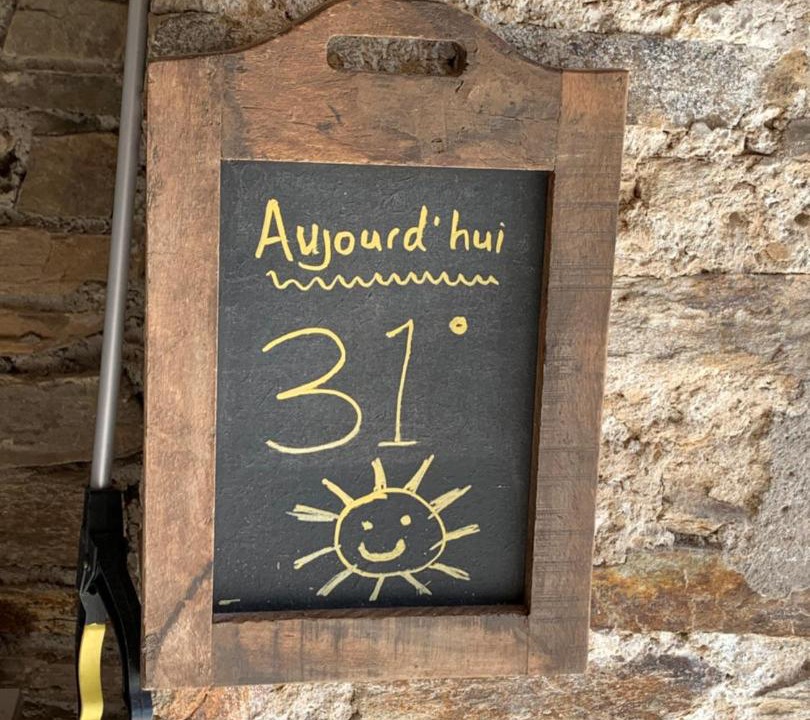 Aujourd'hui
31°